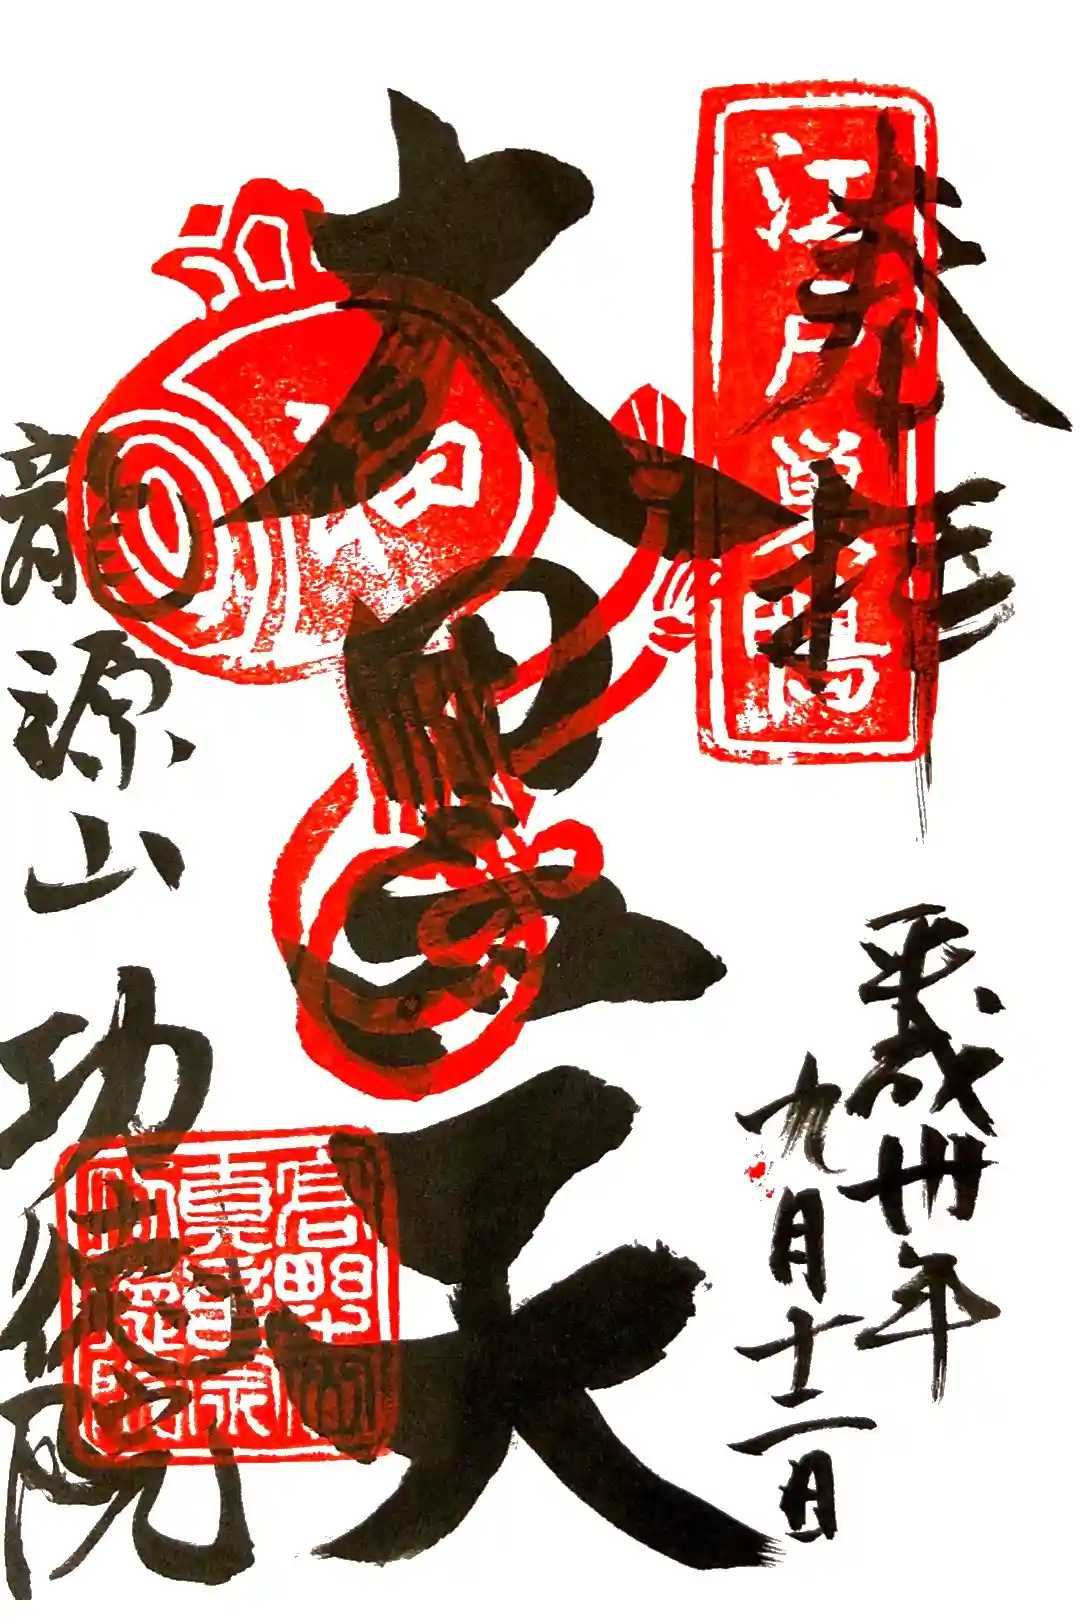 奉拝
江戸巣鴨
平成卅年
九月十二日
大黒天
福
龍源山
功徳院